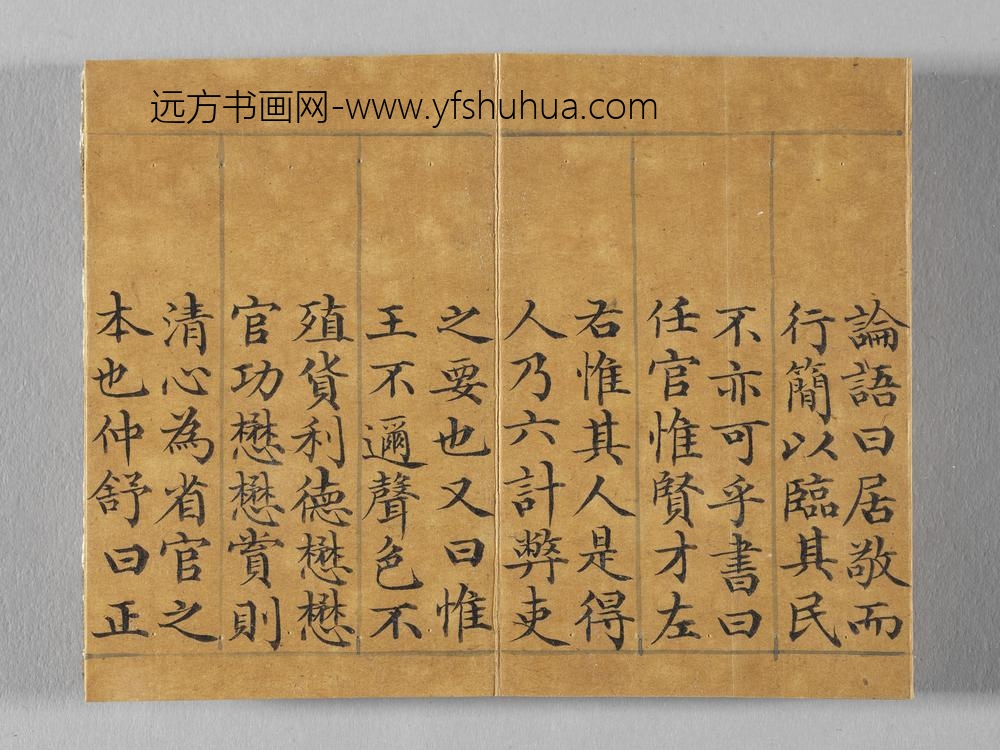 远方书画网-www.yfshuhua.com
論語曰居敬而
行簡以臨其民
不亦可乎書曰
任官惟賢才左
右惟其人是得
人乃六計弊吏
之要也又曰惟
王不邇聲色不
殖貨利德懋懋
官功懋懋賞則
清心為省官之
本也仲舒曰正